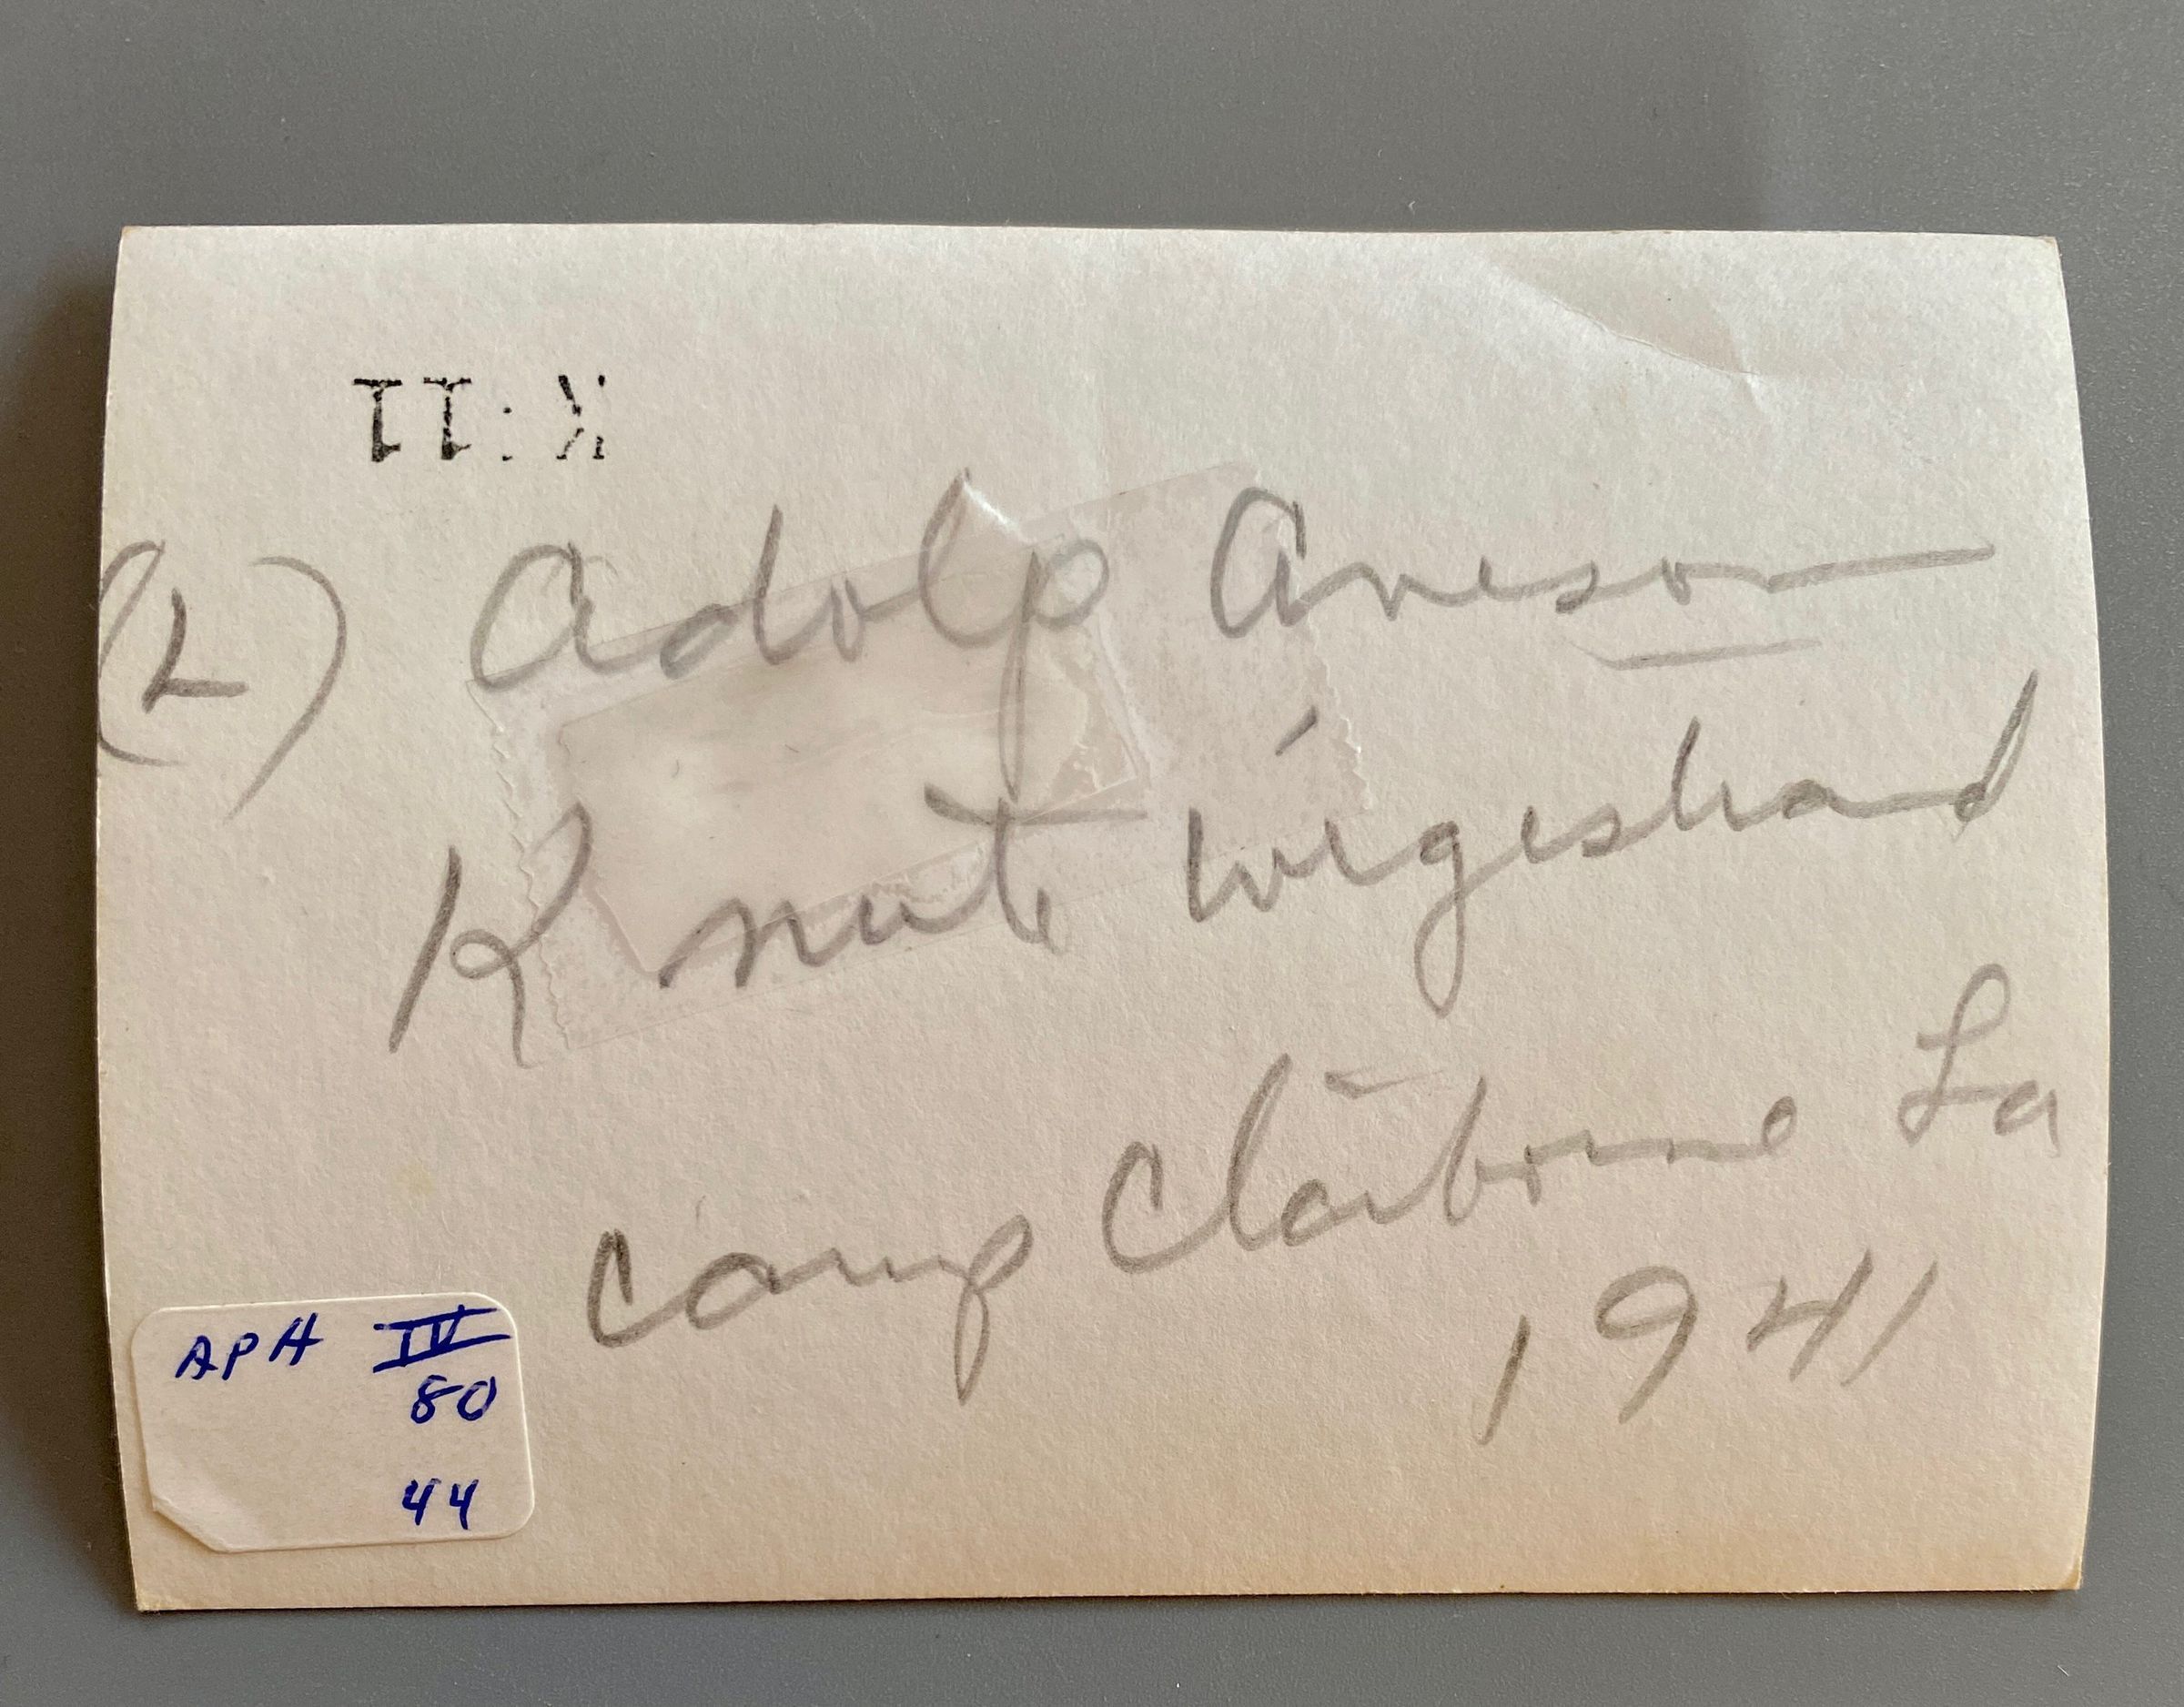 K:11
(L) Adolp Aneson
Knute Wigestrand
Camp Claiborne La
1941
APH IV
80
44